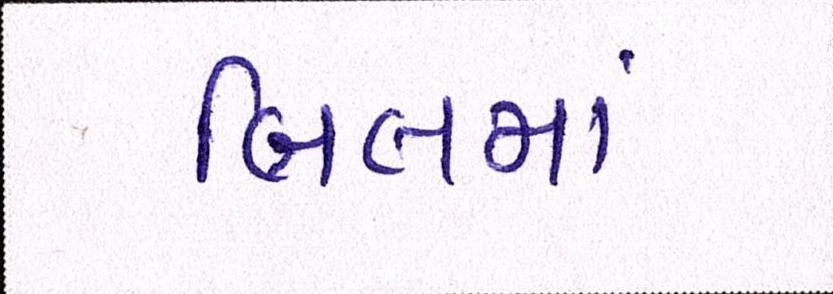 બિલમાં